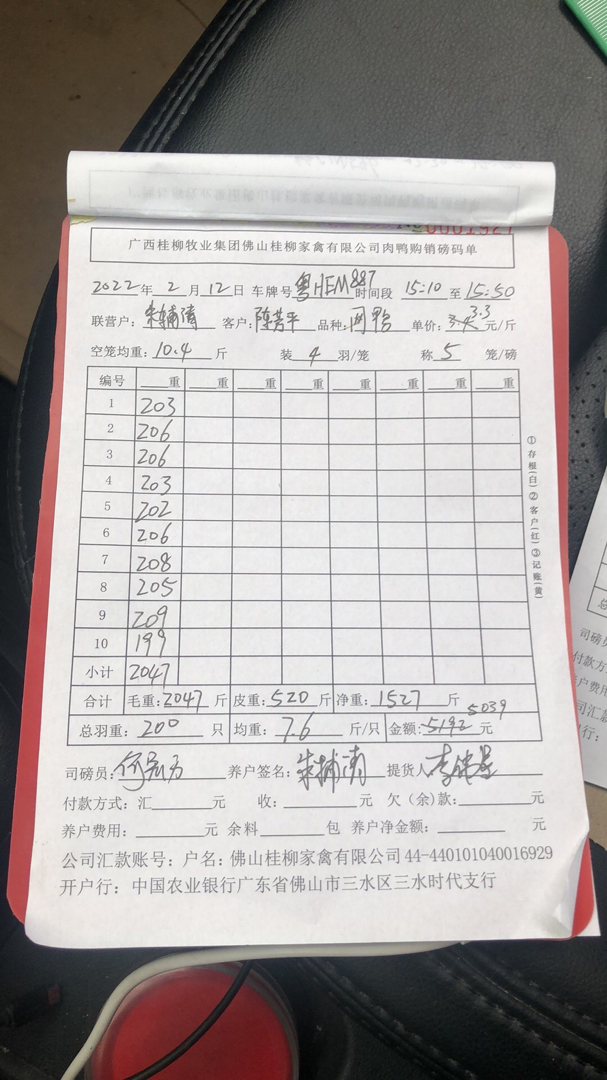 0001927
广西桂柳牧业集团佛山桂柳家禽有限公司肉鸭购销磅码单
2022年 2月 12日 车牌号 粤HEM887 时间段 15:10 至 15:50
联营户: 朱辅清 客户: 陈芳平 品种: 肉鸭 单价: 3.4 3.3 元/斤
空笼均重: 10.4 斤 装 4 羽/笼 称 5 笼/磅
编号 重 重 重 重 重 重 重 重
1 203
2 206
3 206
4 203
5 202
6 206
7 208
8 205
9 209
10 199
小计 2047
合计 毛重: 2047 斤 皮重: 520 斤 净重: 1527 斤
总羽重: 200 只 均重: 7.6 斤/只 金额: 5192 5039 元
司磅员: 养户签名: 朱辅清 提货人
付款方式: 汇 元 收: 元 欠(余)款: 元
养户费用: 元 余料 包 养户净金额: 元
公司汇款账号: 户名: 佛山桂柳家禽有限公司 44-440101040016929
开户行: 中国农业银行广东省佛山市三水区三水时代支行
①存根(白)②客户(红)③记账(黄)
司磅员
付款方
养户费用
司汇款
行: